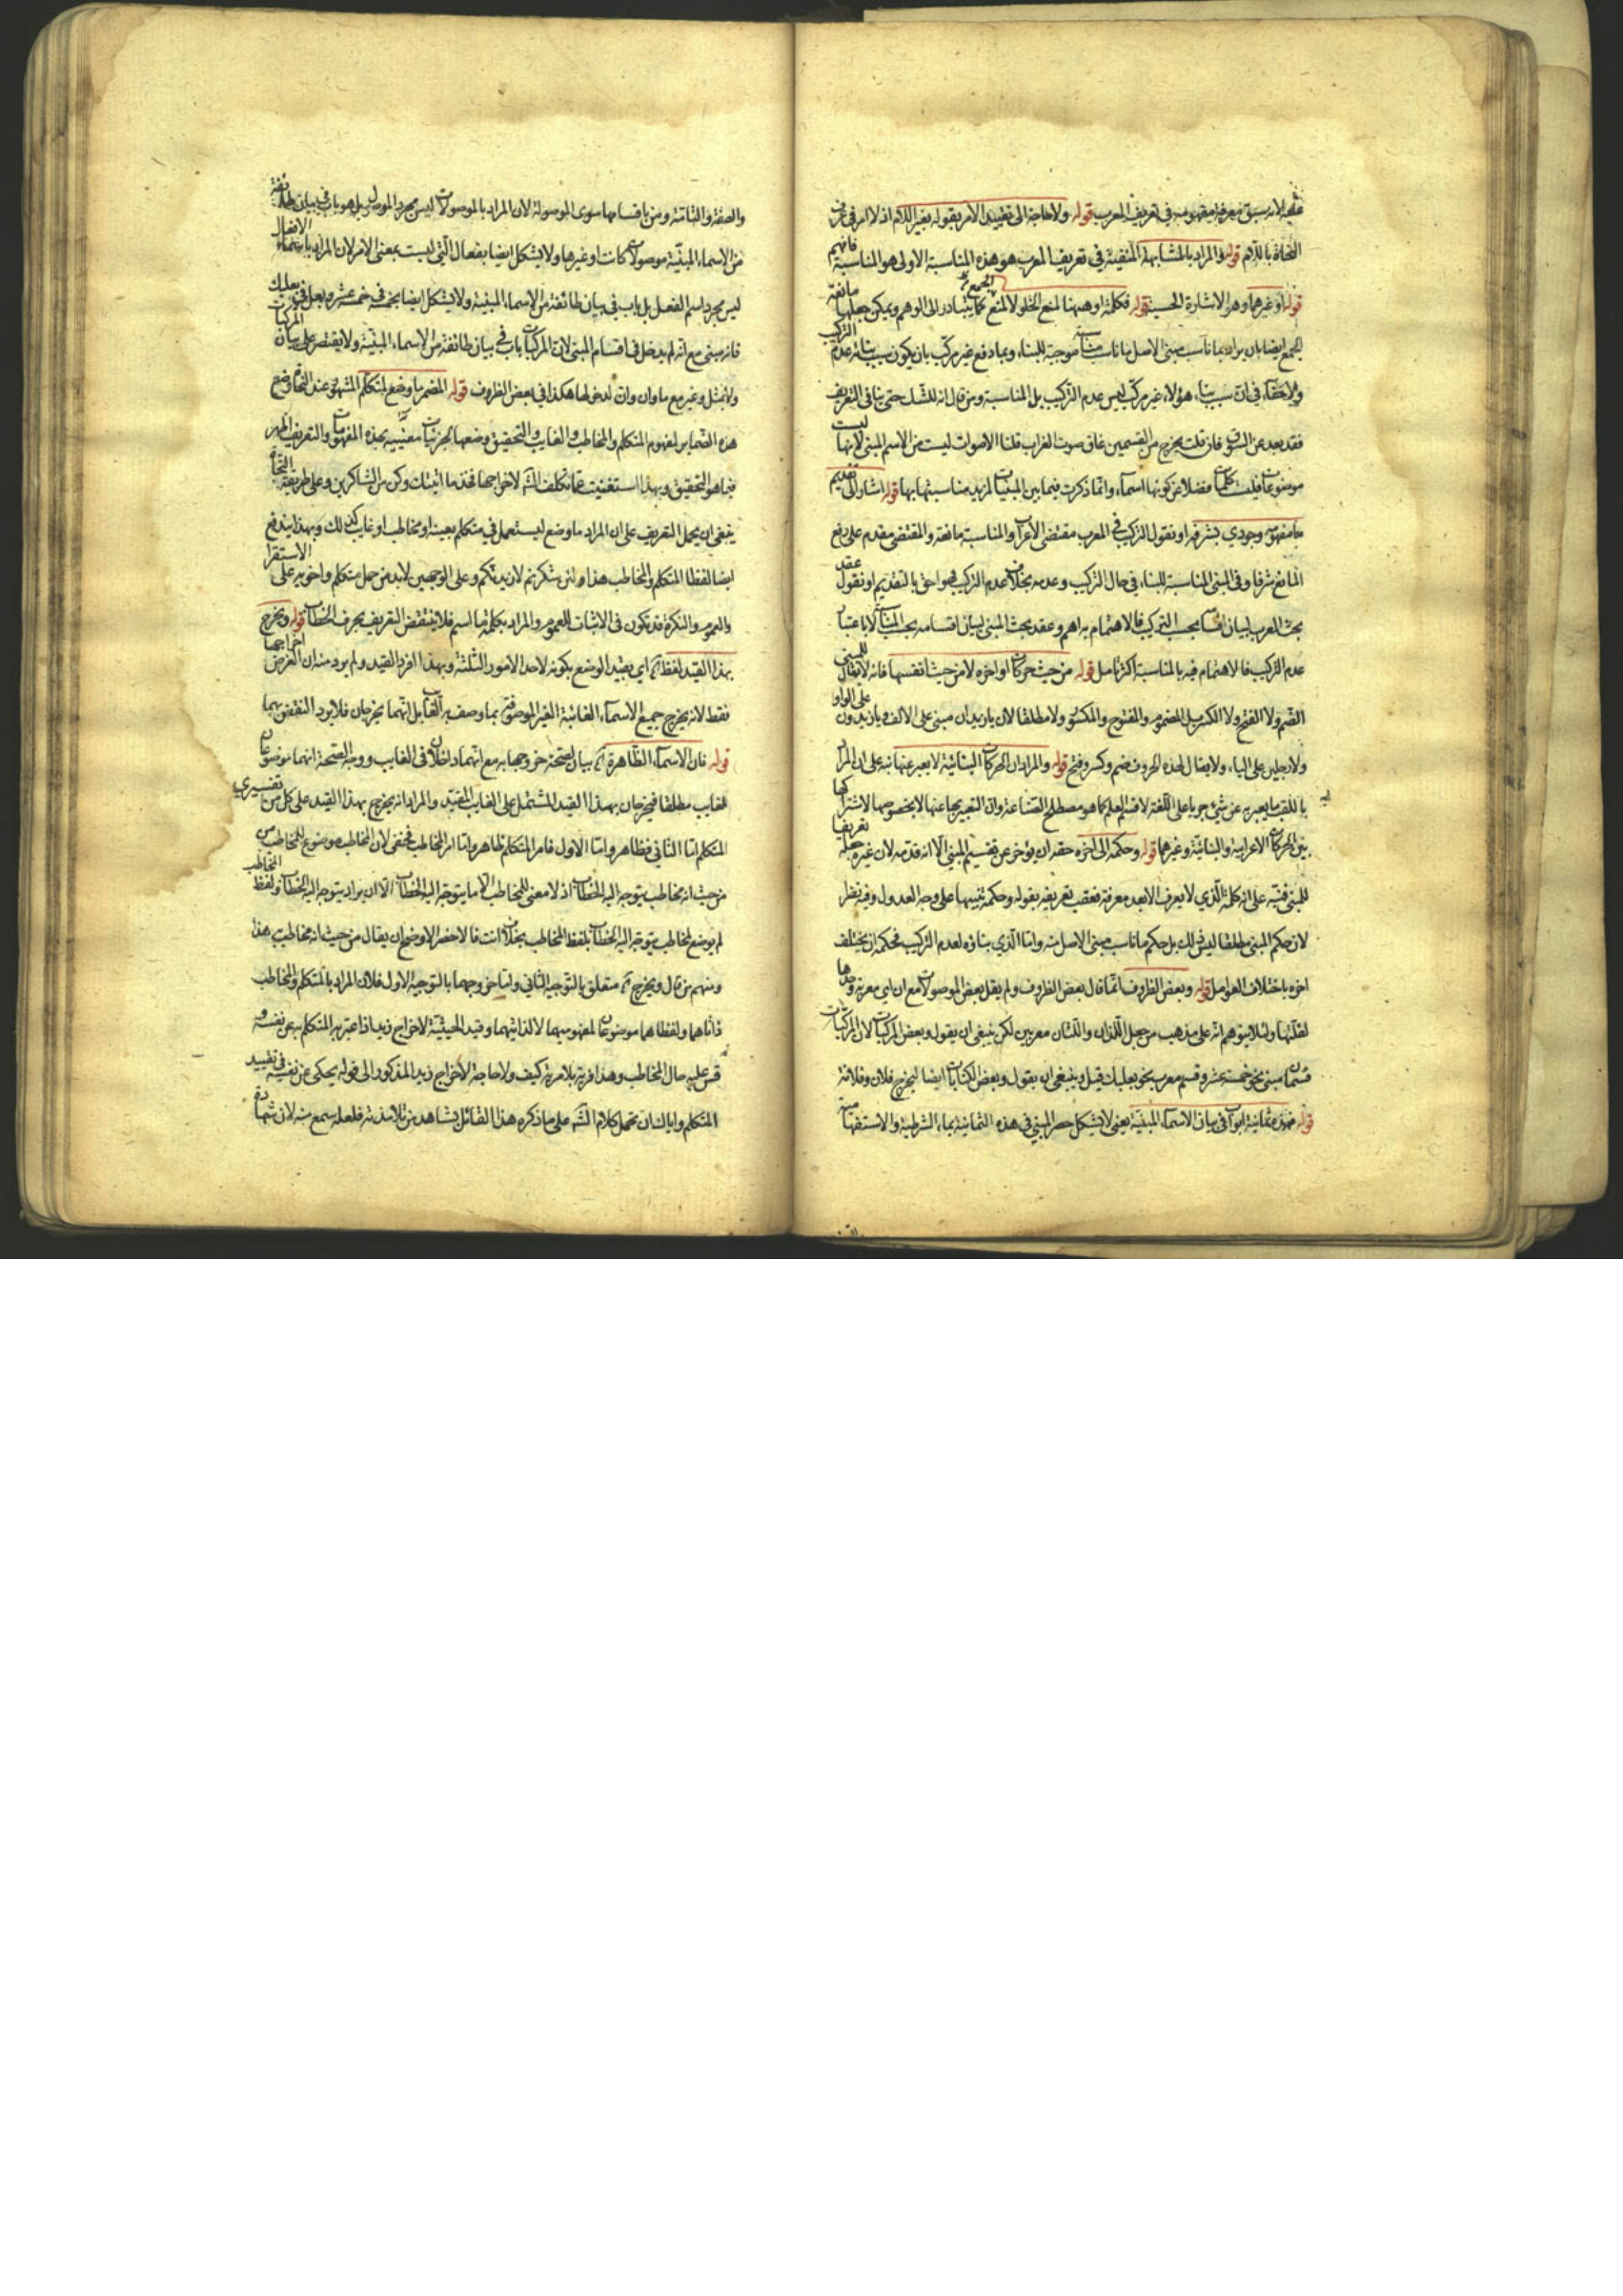 عليه لانه سبق معرفة مفهومه في تعريف المعرب قوله ولا حاجة الى تقييد الامر بقوله بغير اللام اذ لا امر في عرف
النحاة باللام قوله والمراد بالمشابهة المنفية في تعريف المعرب هو هذه المناسبة الاولى هو المناسبة فافهم
قوله او غيرهما وهو الاشارة الحسية قوله فكلمة او ههنا لمنع الخلو لا لمنع الجمع كما يتبادر الى الوهم ويمكن جعلها مانعة
الجمع ايضا بان يراد بما ناسب مبنى الاصل ما ناسب مناسبة موجبة للبناء وبما وقع غير مركب بان يكون سبب بنائه عدم التركيب
ولا خفاء في ان سبب بناء هؤلاء غير مركب ليس عدم التركيب بل المناسبة ومن قال انه للشك حتى ينافي التعريف
فقد بعد عن السوق فان قلت يخرج من القسمين غاق صوت الغراب قلنا الاصوات ليست من الاسم المبنى لانها ليست
موضوعات فليست كلمات فضلا عن كونها اسماء وانما ذكرت فيما بين المبنيات لمزيد مناسبتها بها قوله اشار الى تقديم
ما مفهومه وجودي بشرفه او نقول التركيب في المعرب مقتضى الاعراب والمناسبة مانعته والمقتضى مقدم على رفع
المانع شرفا وفي المبنى المناسبة للبناء في حال التركيب وعدمه بخلاف عدم التركيب فهو احق بالتقديم او نقول عقد
بحث المعرب لبيان اقسامه بحسب التركيب فالاهتمام به اهم وعقد بحث المبنى لبيان اقسامه بحسب المناسبات لا باعتبار
عدم التركيب فالاهتمام فيه بالمناسبة اكثر تامل قوله من حيث حركات اواخره لا من حيث انفسها فانه لا يقال للمبنى
الضم ولا الفتح ولا الكسر بل المضموم والمفتوح والمكسور ولا مطلقا لان يا زيدان مبنى على الالف ويا زيدون على الواو
ولا رجلين على الياء ولا يقال لهذه الحروف ضم وكسر وفتح قوله والمراد ان الحركات البنائية لا يعبر عنها نبه على ان المراد
باللقب ما يعبر به عن شيء جريا على اللغة لا قسم العلم كما هو مصطلح الصناعة وان التعبير بها عنها لا بخصوصها لاشتراكها
بين الحركات الاعرابية والبنائية وغيرهما قوله وحكمه الى اخره حقه ان يؤخر عن تقسيم المبنى الا انه قدمه لان غيره جعله تعريفا
للمبنى فنبه على انه كلمة الذي لا يعرف الا بعد معرفته فعقب تعريفه بقوله وحكمه تنبيها على وجه العدول وفيه نظر
لان حكم المبنى مطلقا ليس ذلك بل حكم ما ناسب مبنى الاصل منه واما الذي بناؤه لعدم التركيب فحكمه ان يختلف
اخره باختلاف العوامل قوله وبعض الظروف انما قال بعض الظروف ولم يقل بعض الموصولات مع ان اي معربة وحدها
لقلتها ولئلا يتوهم انه على مذهب من جعل اللذان واللتان معربين لكن ينبغي ان يقول وبعض المركبات لان المركبات
قسمان مبنى نحو خمسة عشر وقسم معرب نحو بعلبك قيل وينبغي ان يقول وبعض الكنايات ايضا ليخرج فلان وفلانة
قوله فهذه ثمانية ابواب في بيان الاسماء المبنية يعني لا يشكل حصر المبنى في هذه الثمانية بما الشرطية والاستفهامية
والصفة والتامة ومن باقسامها سوى الموصولة لان المراد بالموصولات ليس مجرد الموصول بل هو باب في بيان طائفة
من الاسماء المبنية موصولات كانت او غيرها ولا يشكل ايضا بفعال التي ليست بمعنى الامر لان المراد باسماء الافعال
ليس مجرد اسم الفعل بل باب في بيان طائفة من الاسماء المبنية ولا يشكل ايضا بخمسة في خمسة عشر وبعل في بعلبك
فانه مبنى مع انه لم يدخل في اقسام المبنى لان المركبات باب في بيان طائفة من الاسماء المبنية ولا يقتصر على بيان المركبات
ولا بمثل وغير مع ما وان وان لدخولها هكذا في بعض الظروف قوله المضمر ما وضع لمتكلم المشهور عند النحاة وضع
هذه الضمائر لمفهوم المتكلم والمخاطب والغايب والتحقيق وضعها لجزئيات معينة بهذه المفهومات والتعريف اظهر
فيما هو التحقيق وبهذا استغنيت عما تكلف الش لاخراجها فخذ ما اتيتك وكن من الشاكرين وعلى طريقة النحاة
ينبغي ان يحمل التعريف على ان المراد ما وضع ليستعمل في متكلم بعينه او مخاطب او غايب كذلك وبهذا يندفع
ايضا لفظا المتكلم والمخاطب هذا ولئن شكرتم لازيدنكم وعلى الوجهين لا بد من حمل متكلم واخويه على الاستقراء
والعموم والنكرة قد تكون في الاثبات للعموم والمراد بكلمة ما اسم فلا ينتقض التعريف بحرف الخطاب قوله ويخرج
بهذا القيد لفظ اه اي بقيد الوضع بكونه لاحد الامور الثلثة وبهذا افرد القيد ولم يرد منه ان الغرض اخراجها
فقط لانه يخرج جميع الاسماء الغائبة الغير الموصوفة بما وصف به الغايب بل انهما يخرجان فلا يرد النقض بهما
قوله فان الاسماء الظاهرة اه بيان لصحة خروجها به مع انهما داخلان في الغايب ووجه الصحة انهما موضوعان
لغايب مطلقا فيخرجان بهذا القيد المشتمل على الغايب المقيد والمراد انه يخرج بهذا القيد على كل من تفسيري
المتكلم اما الثاني فظاهر واما الاول فامر المتكلم ظاهر واما امر المخاطب فخفى لان المخاطب موضوع للمخاطب من
من حيث انه مخاطب يتوجه اليه الخطاب اذ لا معنى للمخاطب الا ما يتوجه اليه الخطاب الا ان يراد يتوجه اليه الخطاب ولفظ المخاطب
لم يوضع لمخاطب يتوجه اليه الخطاب بلفظ المخاطب بخلاف انت فالاخصر الاوضح ان يقال من حيث انه مخاطب هذا
ومنهم من قال ويخرج اه متعلق بالتوجيه الثاني واما خروجهما بالتوجيه الاول فلان المراد بالمتكلم والمخاطب
ذاتاهما ولفظاهما موضوعان لمفهوميهما لا لذاتيهما وقيد الحيثية لاخراج زيد اذا عبر به المتكلم به عن نفسه و
قس عليه حال المخاطب وهذا فرية بلا مرية كيف ولا حاجة لاخراج زيد المذكور الى قوله يحكى عن نفسه في تقييد
المتكلم واياك ان تحمل كلام الش على ما ذكره هذا القائل بشاهد من تلامذته فلعله سمع منه لان شهادة